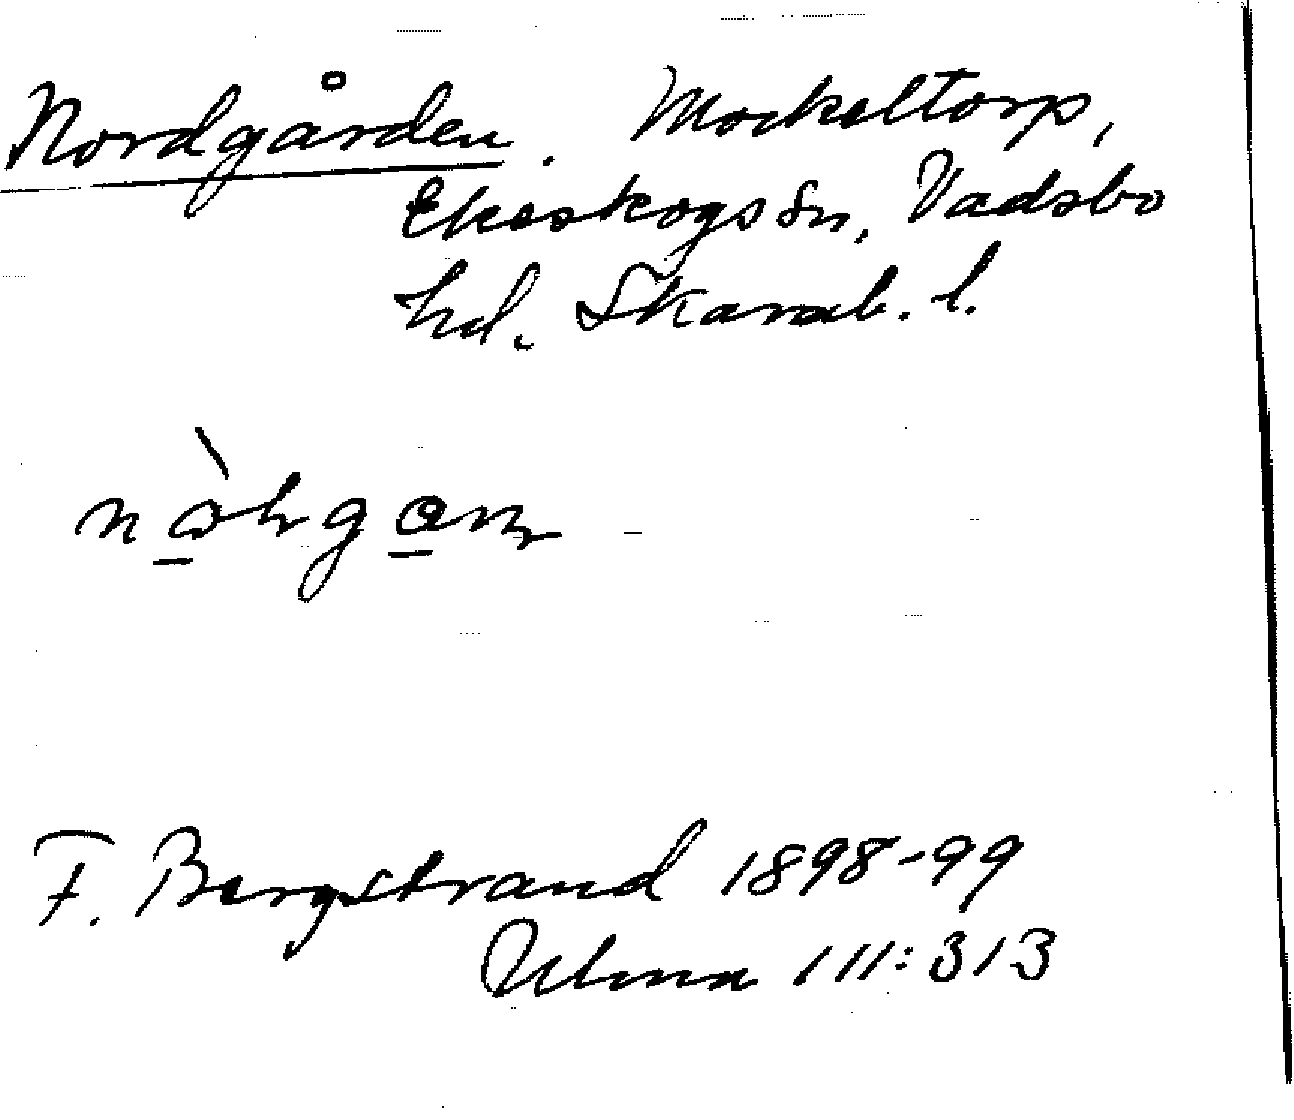 Nordgården. Mockeltorp,
Ekeskogs sn, Vadsbo
hd. Skarab. l.
F. Bergstrand 1898-99
Ulma 111:313